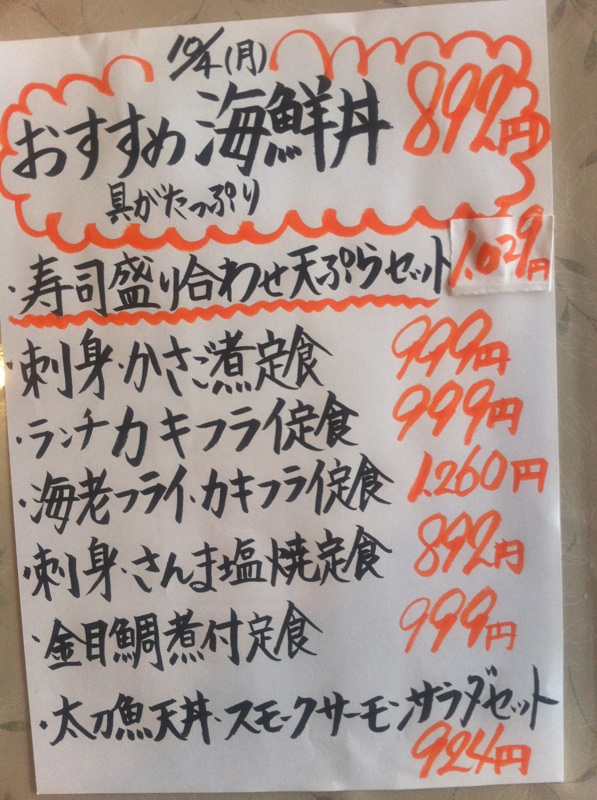 10/4(月)
おすすめ 海鮮丼 892円
具がたっぷり
・寿司盛り合わせ天ぷらセット 1,029円
・刺身・かさご煮定食 999円
・ランチカキフライ定食 999円
・海老フライ・カキフライ定食 1,260円
・刺身・さんま塩焼定食 892円
・金目鯛煮付定食 999円
・太刀魚天丼・スモークサーモンサラダセット
924円